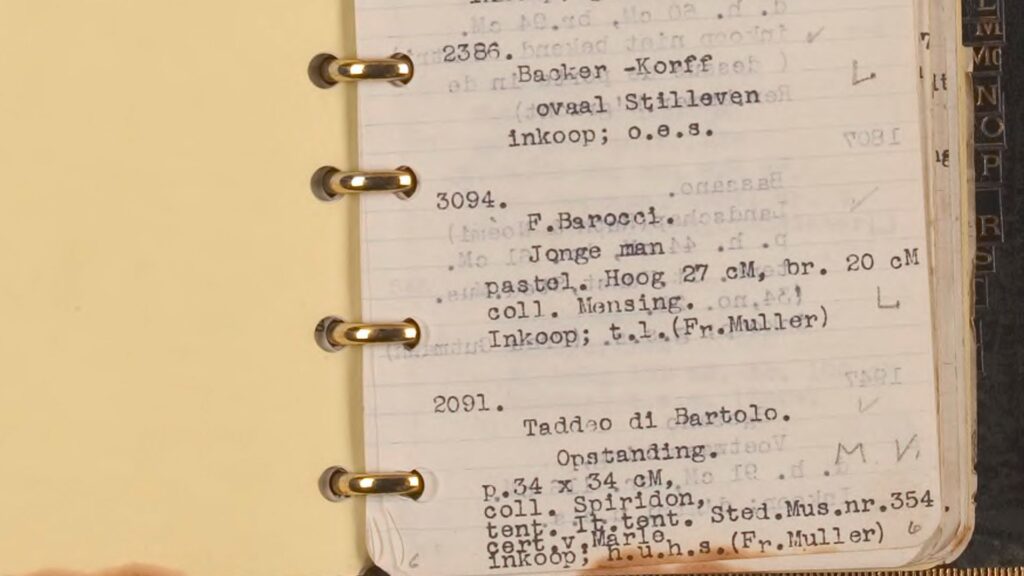 2386.
Backer -Korff
ovaal Stilleven
inkoop; o.e.s.
L
3094.
F.Barocci.
Jonge man
pastel. Hoog 27 cM, br. 20 cM
coll. Mensing.
Inkoop; t.l.(Fr.Muller)
L
2091.
Taddeo di Bartolo.
Opstanding.
M V.
p.34 x 34 cM,
coll. Spiridon,
tent. It.tent. Sted.Mus.nr.354.
cert.v.Marle
inkoop; h.u.h.s.(Fr.Muller)
6
6
L
M
Mc
N
O
P
R
S
T